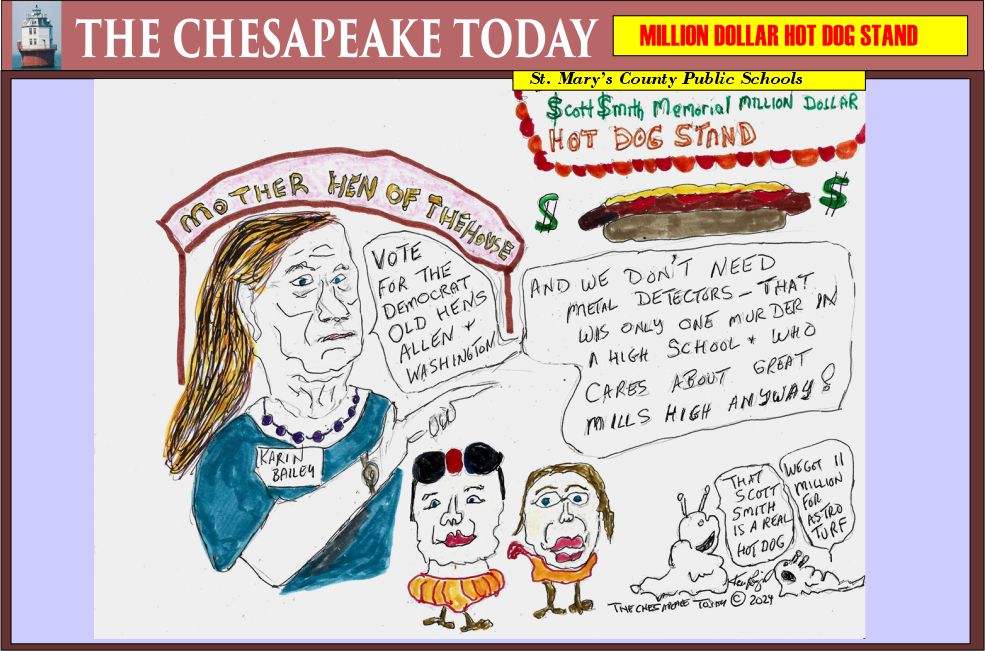 THE CHESAPEAKE TODAY
MILLION DOLLAR HOT DOG STAND
St. Mary's County Public Schools
$cott $mith Memorial MILLION DOLLAR
HOT DOG STAND
$ $
MOTHER HEN OF THE HOUSE
VOTE
FOR THE
DEMOCRAT
OLD HENS
ALLEN +
WASHINGTON
AND WE DON'T NEED
METAL DETECTORS - THAT
WAS ONLY ONE MURDER IN
A HIGH SCHOOL + WHO
CARES ABOUT GREAT
MILLS HIGH ANYWAY!
KARIN
BAILEY
THAT
SCOTT
SMITH
IS A REAL
HOT DOG
WE GOT 11
MILLION
FOR
ASTRO
TURF
THE CHESAPEAKE TODAY © 2024